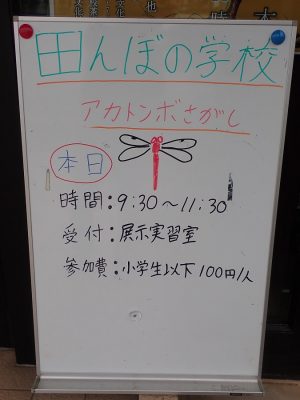 田んぼの学校
アカトンボさがし
本日
時間:9:30〜11:30
受付:展示実習室
参加費:小学生以下100円/人